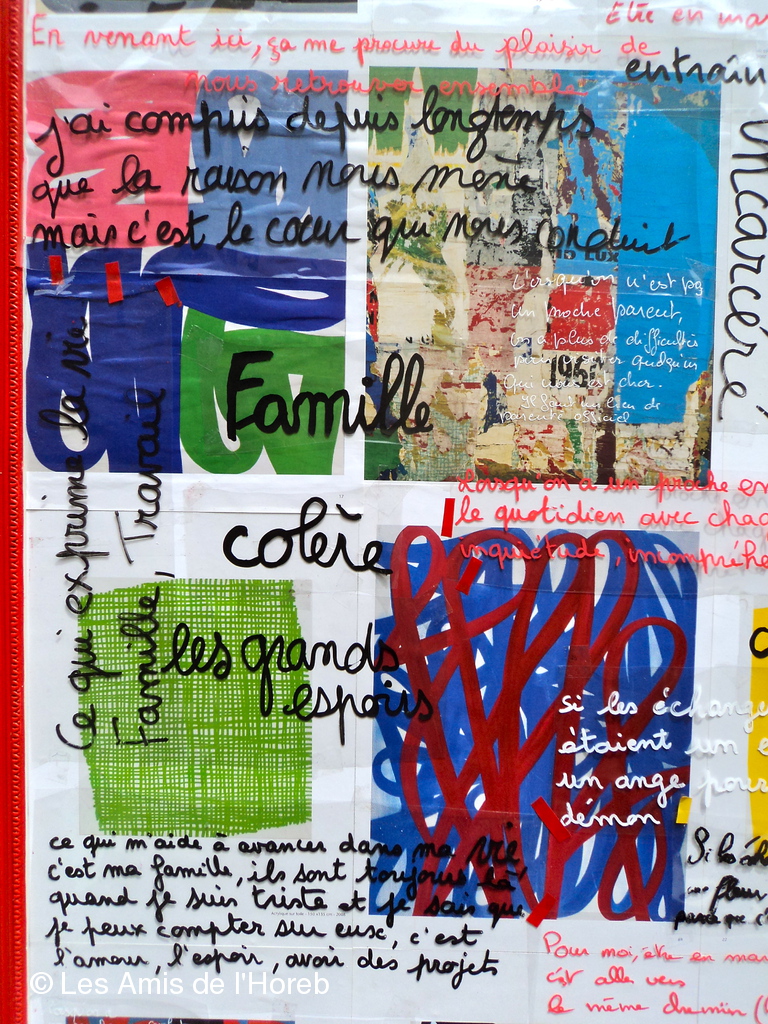 Etre en mar
En venant ici, ça me procure du plaisir de
nous retrouver ensemble
entraîn
j'ai compris depuis longtemps
que la raison nous mène
mais c'est le coeur qui nous conduit
incarcéré
Lorsqu'on n'est pas
un proche parent,
on a plus de difficultés
quelqu'un
qui nous est cher.
un lien de
parenté officiel
1961
Famille
Ce qui exprime la vie
Famille, Travail
Lorsqu'on a un proche en
le quotidien avec chag
inquiétude, incompréhe
colère
les grands
espoirs
si les échange
étaient un e
un ange pour
démon
ce qui m'aide à avancer dans ma vie
c'est ma famille, ils sont toujours là
quand je suis triste et je sais que
je peux compter sur eux, c'est
l'amour, l'espoir, avoir des projets
Si les éch
fleur
parce que c'
Pour moi, être en mar
c'est aller vers
le même chemin (
© Les Amis de l'Horeb